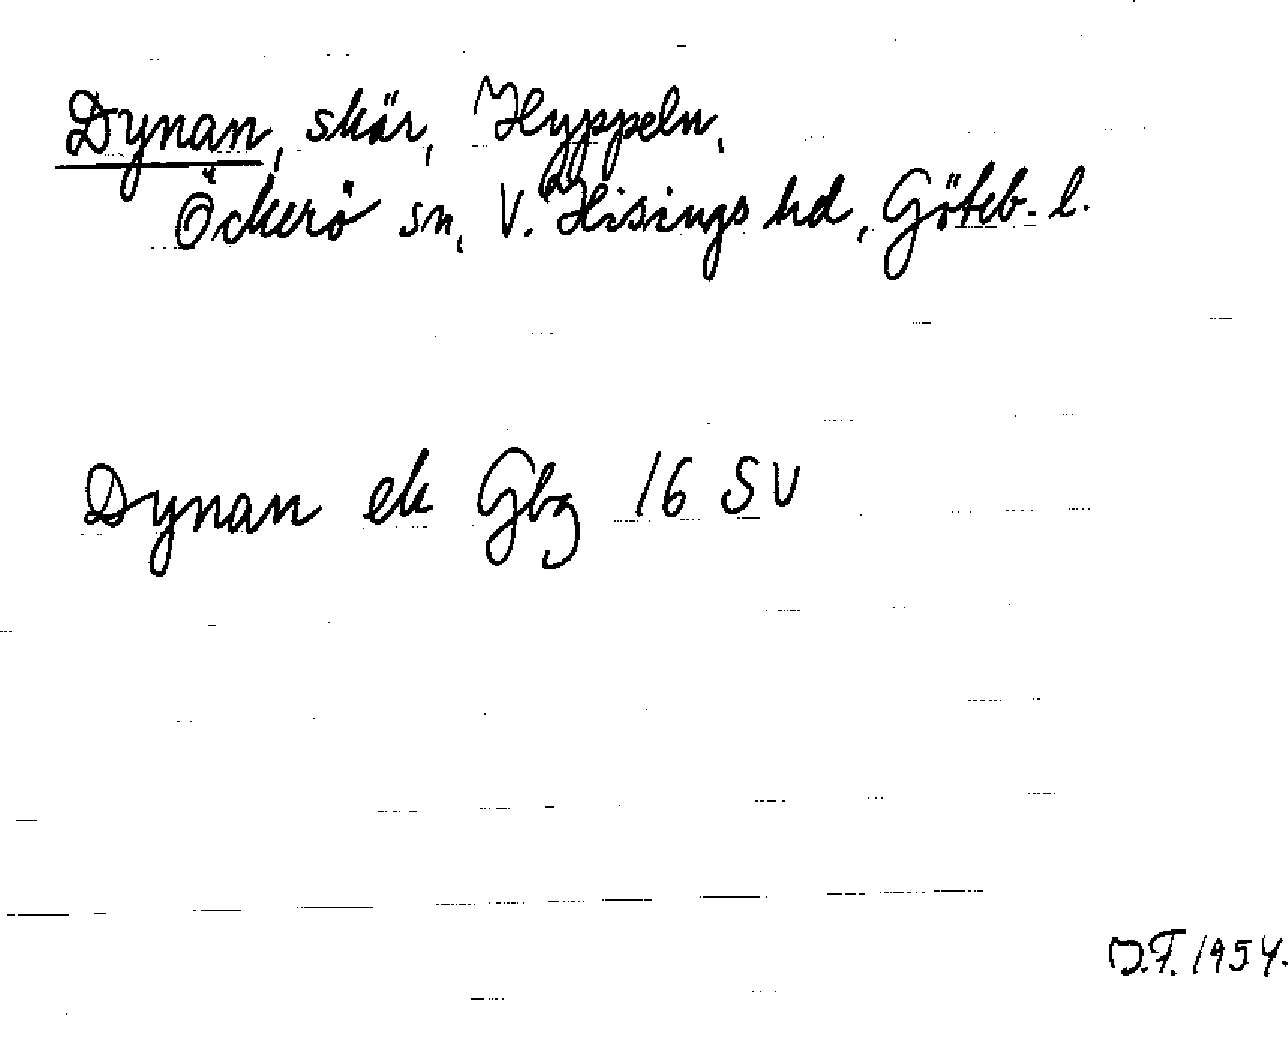 Dynan, skär, Hyppeln,
Öckerö sn, V. Hisings hd, Göteb. l.
Dynan ek Gbg 16 SV
D.F. 1954.